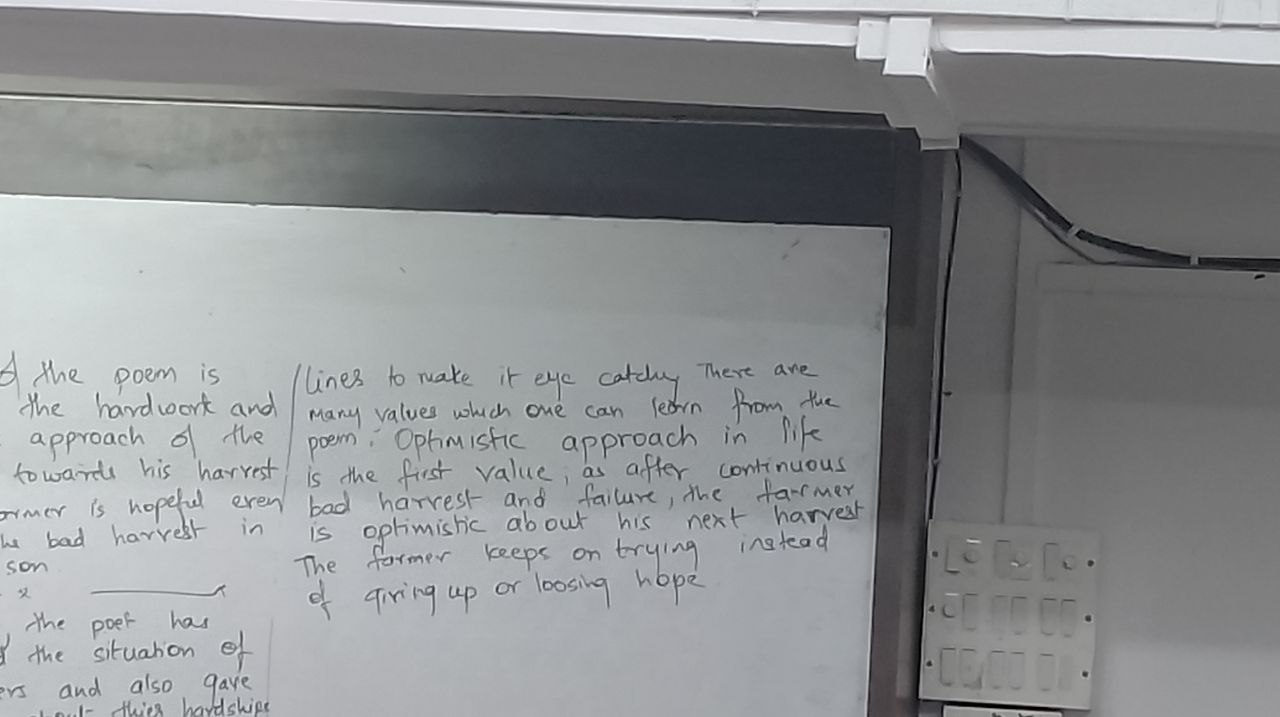 the poem is
the hardwork and
approach of the
towards his harvest
is hopeful even
bad harvest in
son
x
the poet has
the situation of
ers and also gave
thier hardships
lines to make it eye catchy There are
many values which one can learn from the
poem. Optimistic approach in life
is the first value, as after continuous
bad harvest and failure, the farmer
is optimistic about his next harvest
The farmer keeps on trying instead
of giving up or loosing hope